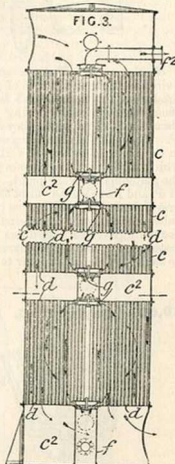 FIG.3.
f²
c
c² g f
c
c d g d
c
d g c²
d d
c² f